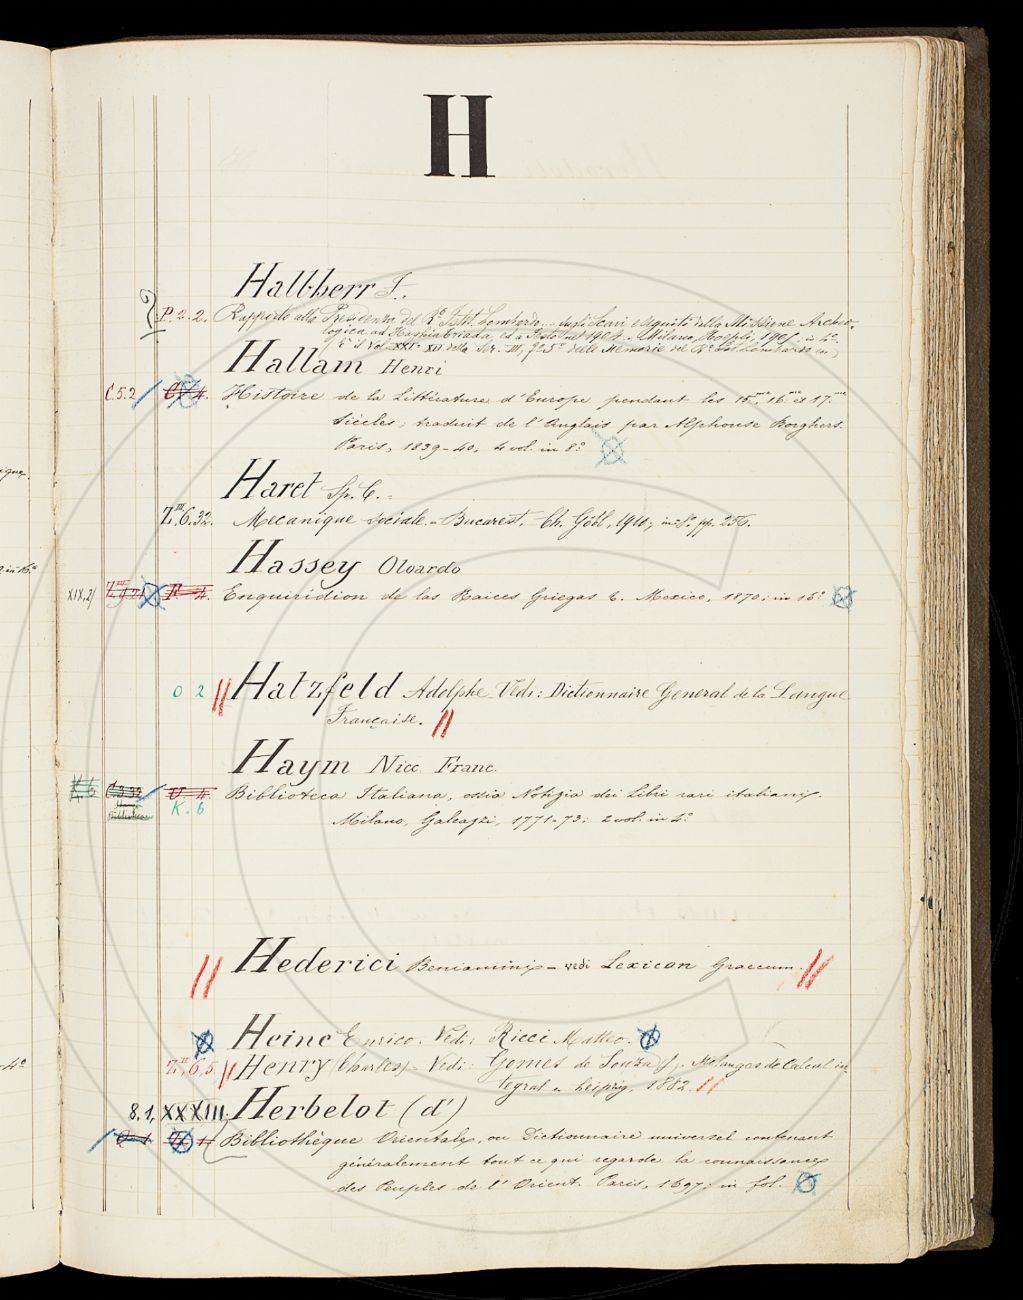 H
Halbherr F.
P. 2. 2. Rapporto alla Presidenza del R.º Istit. Lombardo... sugli Scavi eseguiti dalla Missione Archeo-
logica ad Haghia Triada, ed a Festo nel 1904. Milano, Hoepli, 1905; in 4º.
È il Vol. XXI - XII della Ser. III, f.º 5º delle Memorie del R.º Ist. Lombardo
Hallam Henri
C.5.2 Histoire de la Littérature d'Europe pendant les 15me, 16me et 17me
siècles; traduit de l'Anglais par Alphonse Borghers.
Paris, 1839-40; 4 vol. in 8º
Haret Sp. C. -
Z.III.6.32. Mecanique sociale. - Bucarest. Ch. Göbl, 1910; in-8º pp. 256.
Hassey Oloardo
XIX,2/ Enquiridion de las Raices Griegas &. Mexico, 1870; in 16º
O 2 Hatzfeld Adolphe. Vedi: Dictionnaire General de la Langue
Française.
Haym Nicc. Franc.
K. 6 Biblioteca Italiana, ossia Notizia dei Libri rari italiani.
Milano, Galeazzi, 1771-73; 2 vol. in 4º
Hederici Beniamini - vedi Lexicon Graecum.
Heine Enrico. Vedi: Ricci Matteo.
Z.II,6,5. Henry (Charles) - Vedi: Gomes de Souza (J). Mélanges de Calcul in-
tegral - Leipzig, 1882.
8.1, XXXIII. Herbelot (d')
Bibliothèque Orientale, ou Dictionnaire universel contenant
généralement tout ce qui regarde la connaissance
des Peuples de l'Orient. Paris, 1697; in fol.